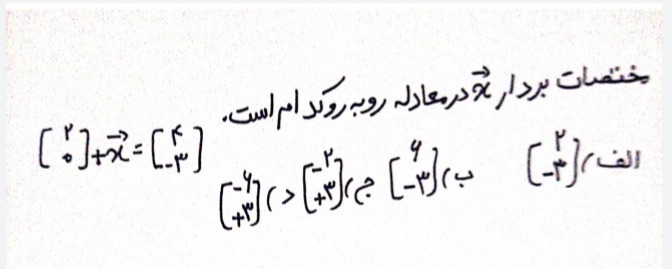 مختصات بردار x⃗ در معادله روبه رو کدام است.
[۲ ۰] + x⃗ = [۴ -۳]
الف) [۲ -۳] ب) [۶ -۳] ج) [-۲ +۳] د) [-۶ +۳]